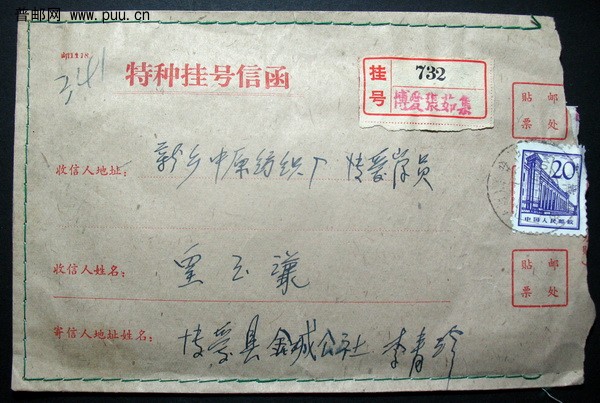 普邮网
www.puu.cn
特种挂号信函
挂号
732
博爱張茹集
贴邮
票处
20
中国人民邮政
收信人地址：新乡中原纺织厂 博爱学员
收信人姓名：
贴邮
票处
寄信人地址姓名：博爱县金城公社 李青珍